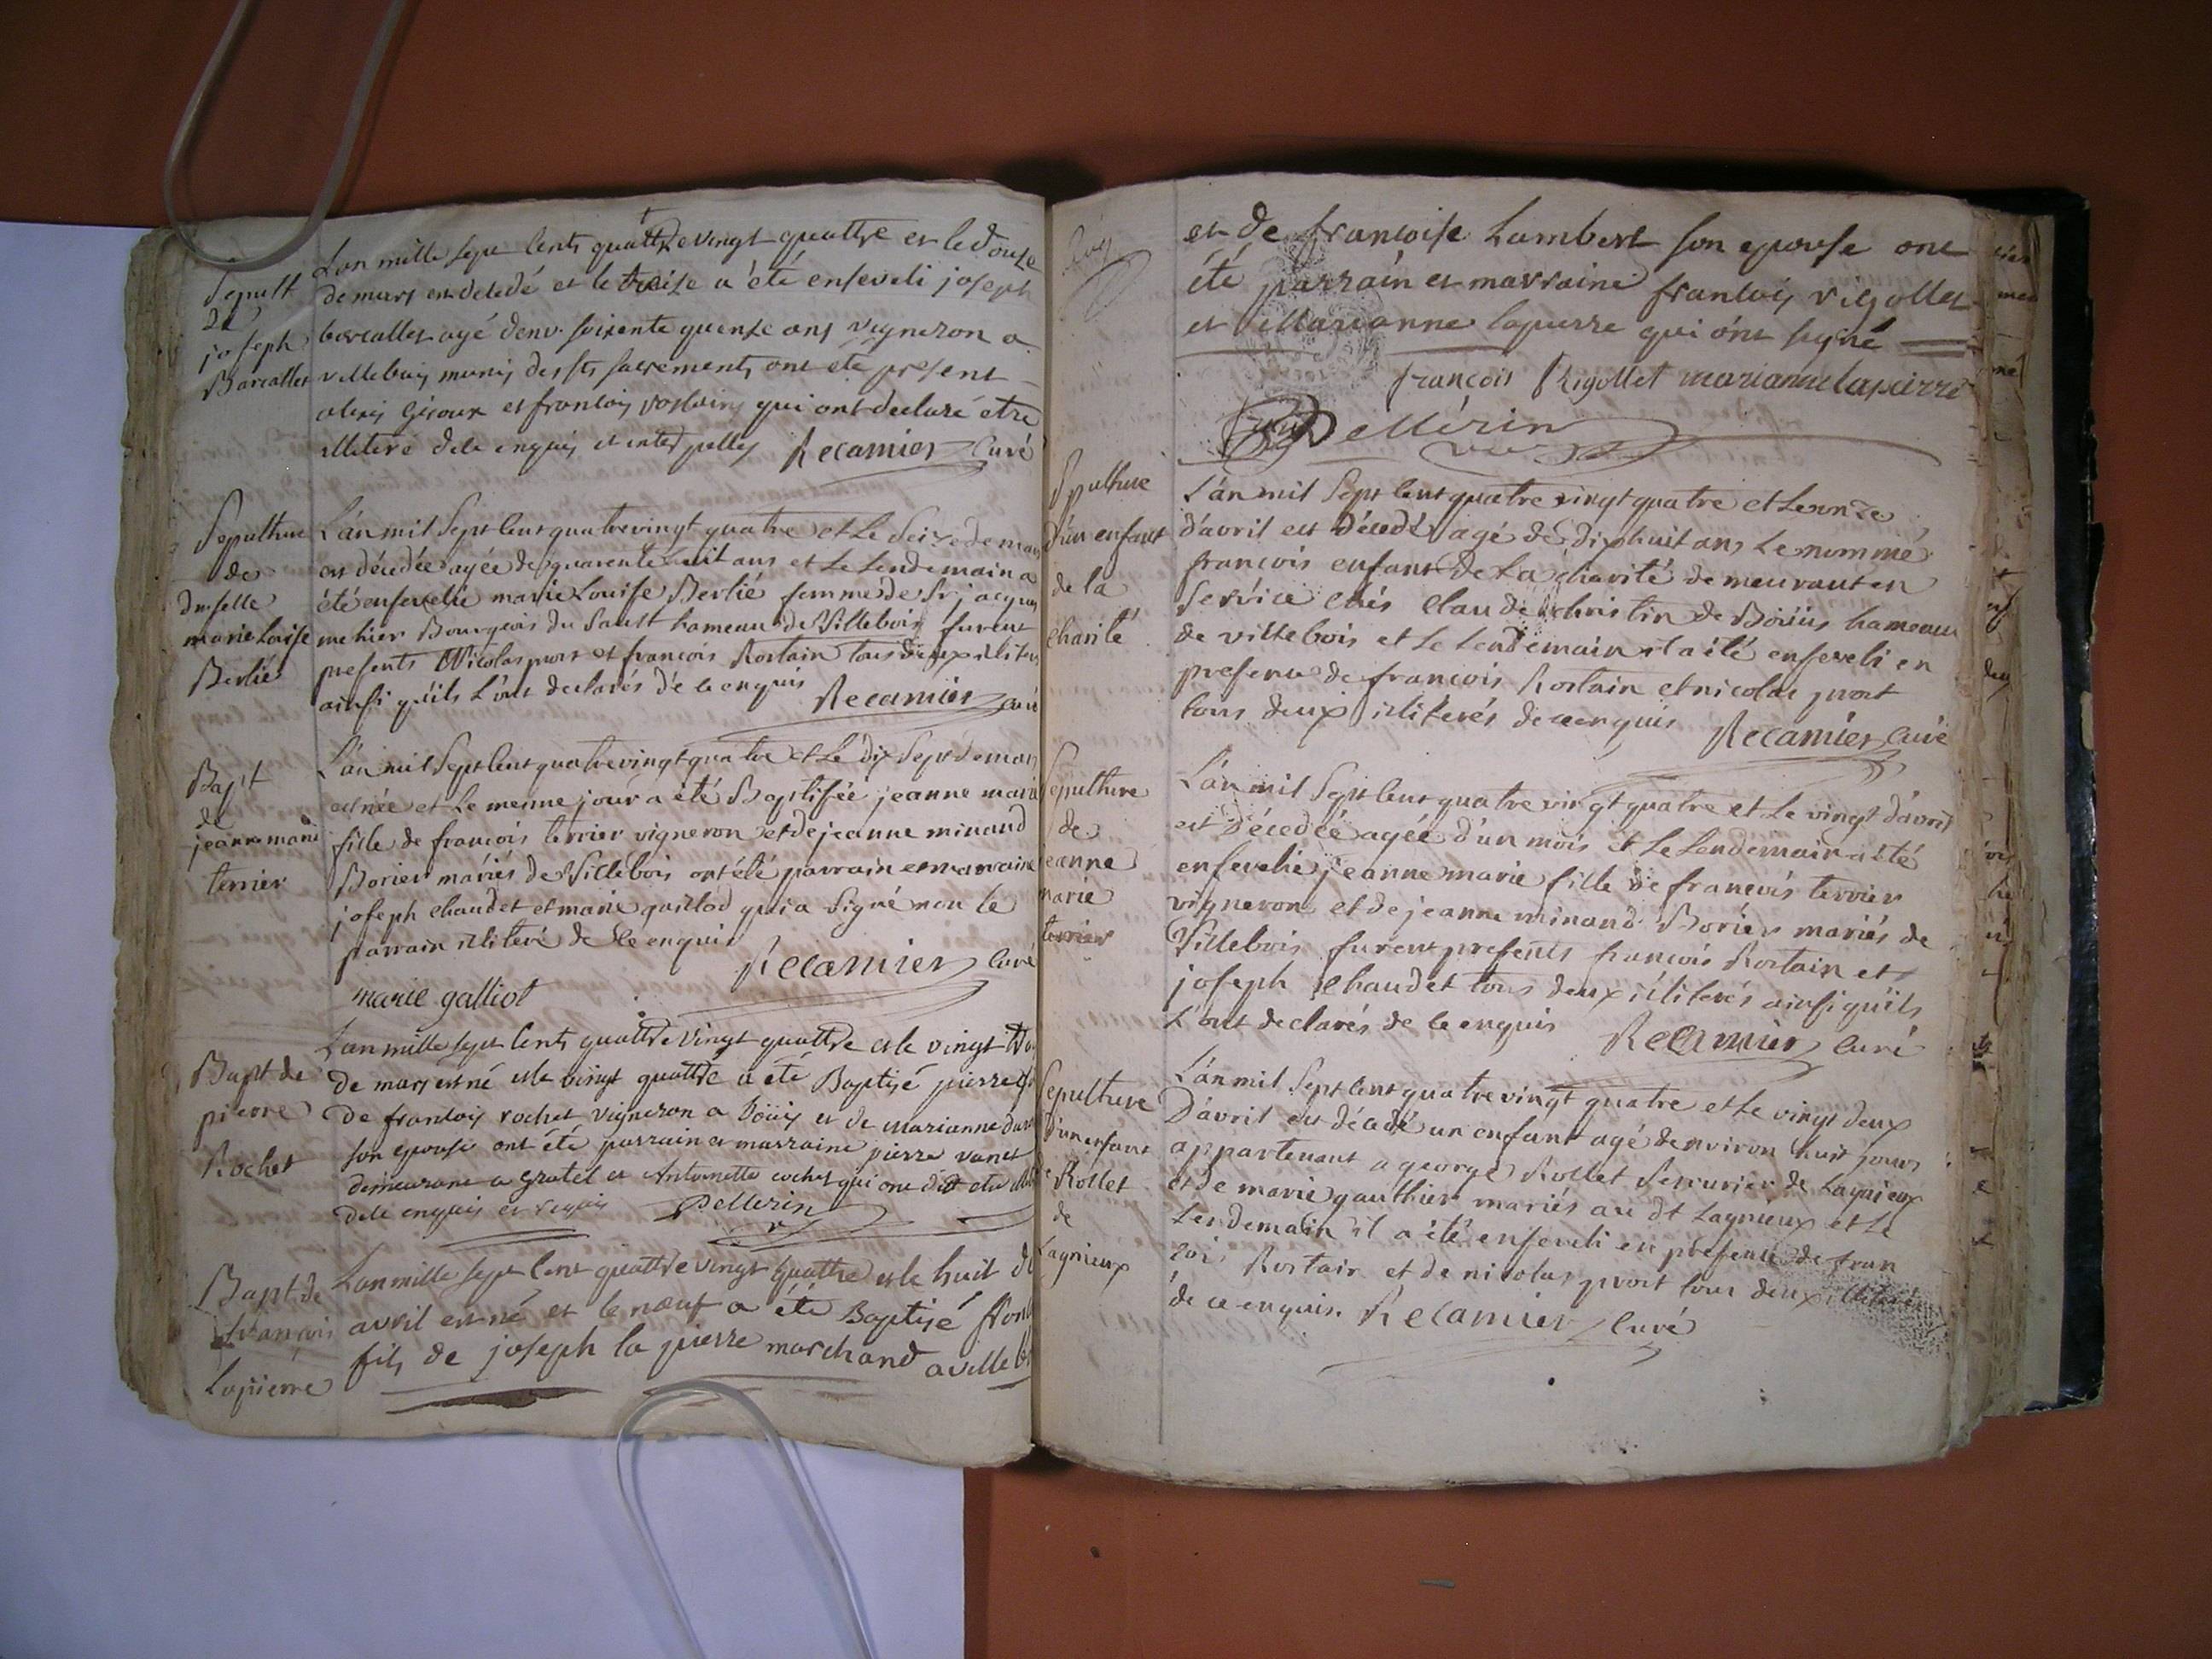 Sepult
de
joseph
Barcallet
L'an mille sept cents quattre vingt quattre et le douze
de mars est decedé et le treize a été enseveli joseph
barcallet agé d'env. soixente quenze ans vigneron a
villebois munis des sts sacrements ont eté present
alexis Giroux et françois rostaing qui ont declaré etre
illiteré de ce enquis et interpellés Recamier Curé
Sepulture
de
dmselle
marie Loise
Berlié
L'an mil Sept Cent quatre vingt quatre et Le Seize de mars
est décedée agée de quarente huit ans et Le Lendemain a
été ensevelie marie Louise Berlié femme de Sr jacques
mehier Bourgeois du Sault hameau de Villebois furent
presents Nicolas prort et françois Rostain tous deux iliteres
ainsi qu'ils L'ont declarés de ce enquis Recamier Curé
Bapt
de
jeanne marie
terrier
L'an mil Sept Cent quatre vingt quatre et Le dix Sept de mars
est née et Le meme jour a été Baptisée jeanne marie
fille de françois terrier vigneron et de jeanne minaud
Borier mariés de Villebois ont été parrain et marraine
joseph chaudet et marie gaillod qui a Signé non le
parrain illiteré de Ce enquis
Recamier Curé
marie galliot
Bapt de
pierre
Rochet
L'an mille sept cents quattre vingt quattre et le vingt trois
de mars est né et le vingt quattre a été Baptisé pierre fils
de françois rochet vigneron a Boüis et de marianne
son epouse ont été parrain et marraine pierre vanet
demeurant a Gratel et Antoinette rochet qui ont dit etre
de ce enquis et requis Pellerin
Bapt de
françois
Lapierre
L'an mille sept cent quattre vingt quattre et le huit de
avril est né et le nœuf a été Baptisé fran
fils de joseph la pierre marchand a villebois
et de françoise Lambert son epouse ont
été parrain et marraine françois rigollet
et Marianne lapierre qui ont signé
françois Rigollet marianne lapierre
Pellérin
Sepulture
d'un enfant
de la
Charité
L'an mil Sept Cent quatre vingt quatre et Le onze
d'avril est décedé agé de dix huit ans Le nommé
françois enfant de La charité demeurant en
Service chés Claude christin de Boiüis hameau
de villebois et Le Lendemain il a été enseveli en
presence de françois Rostain et nicolas prort
tous deux illiterés de ce enquis Recamier Curé
Sepulture
de
jeanne
marie
terrier
L'an mil Sept Cent quatre vingt quatre et Le vingt d'avril
est décedée agée d'un mois et Le Lendemain a été
ensevelie jeanne marie fille de françois terrier
vigneron et de jeanne minaud Borier mariés de
Villebois furent presents françois Rostain et
joseph Chaudet tous deux illiterés ainsi qu'ils
L'ont declarés de Ce enquis Recamier Curé
Sepulture
d'un enfant
de Rollet
de
Lagnieux
L'an mil Sept Cent quatre vingt quatre et le vingt deux
D'avril est décedé un enfant agé d'environ huit jours
appartenant a george Rollet Serrurier de Lagnieux
et de marie gauthier mariés au dt Lagnieux et Le
Lendemain il a été enseveli en presence de fran
çois Rostain et de nicolas prort tous deux illiterés
de ce enquis. Recamier Curé